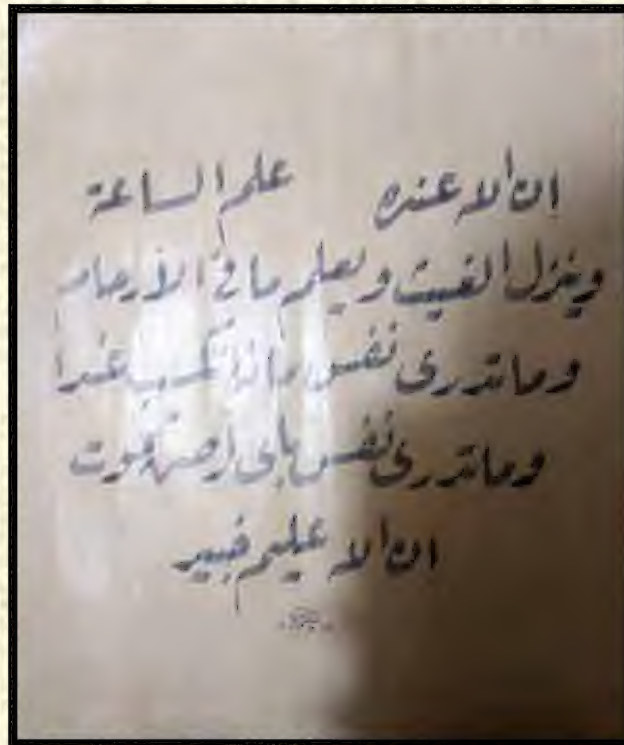 ان الله عنده علم الساعة
وينزل الغيث ويعلم ما في الأرحام
وما تدرى نفس ماذا تكسب غدا
وما تدرى نفس بأى ارض تموت
ان الله عليم خبير